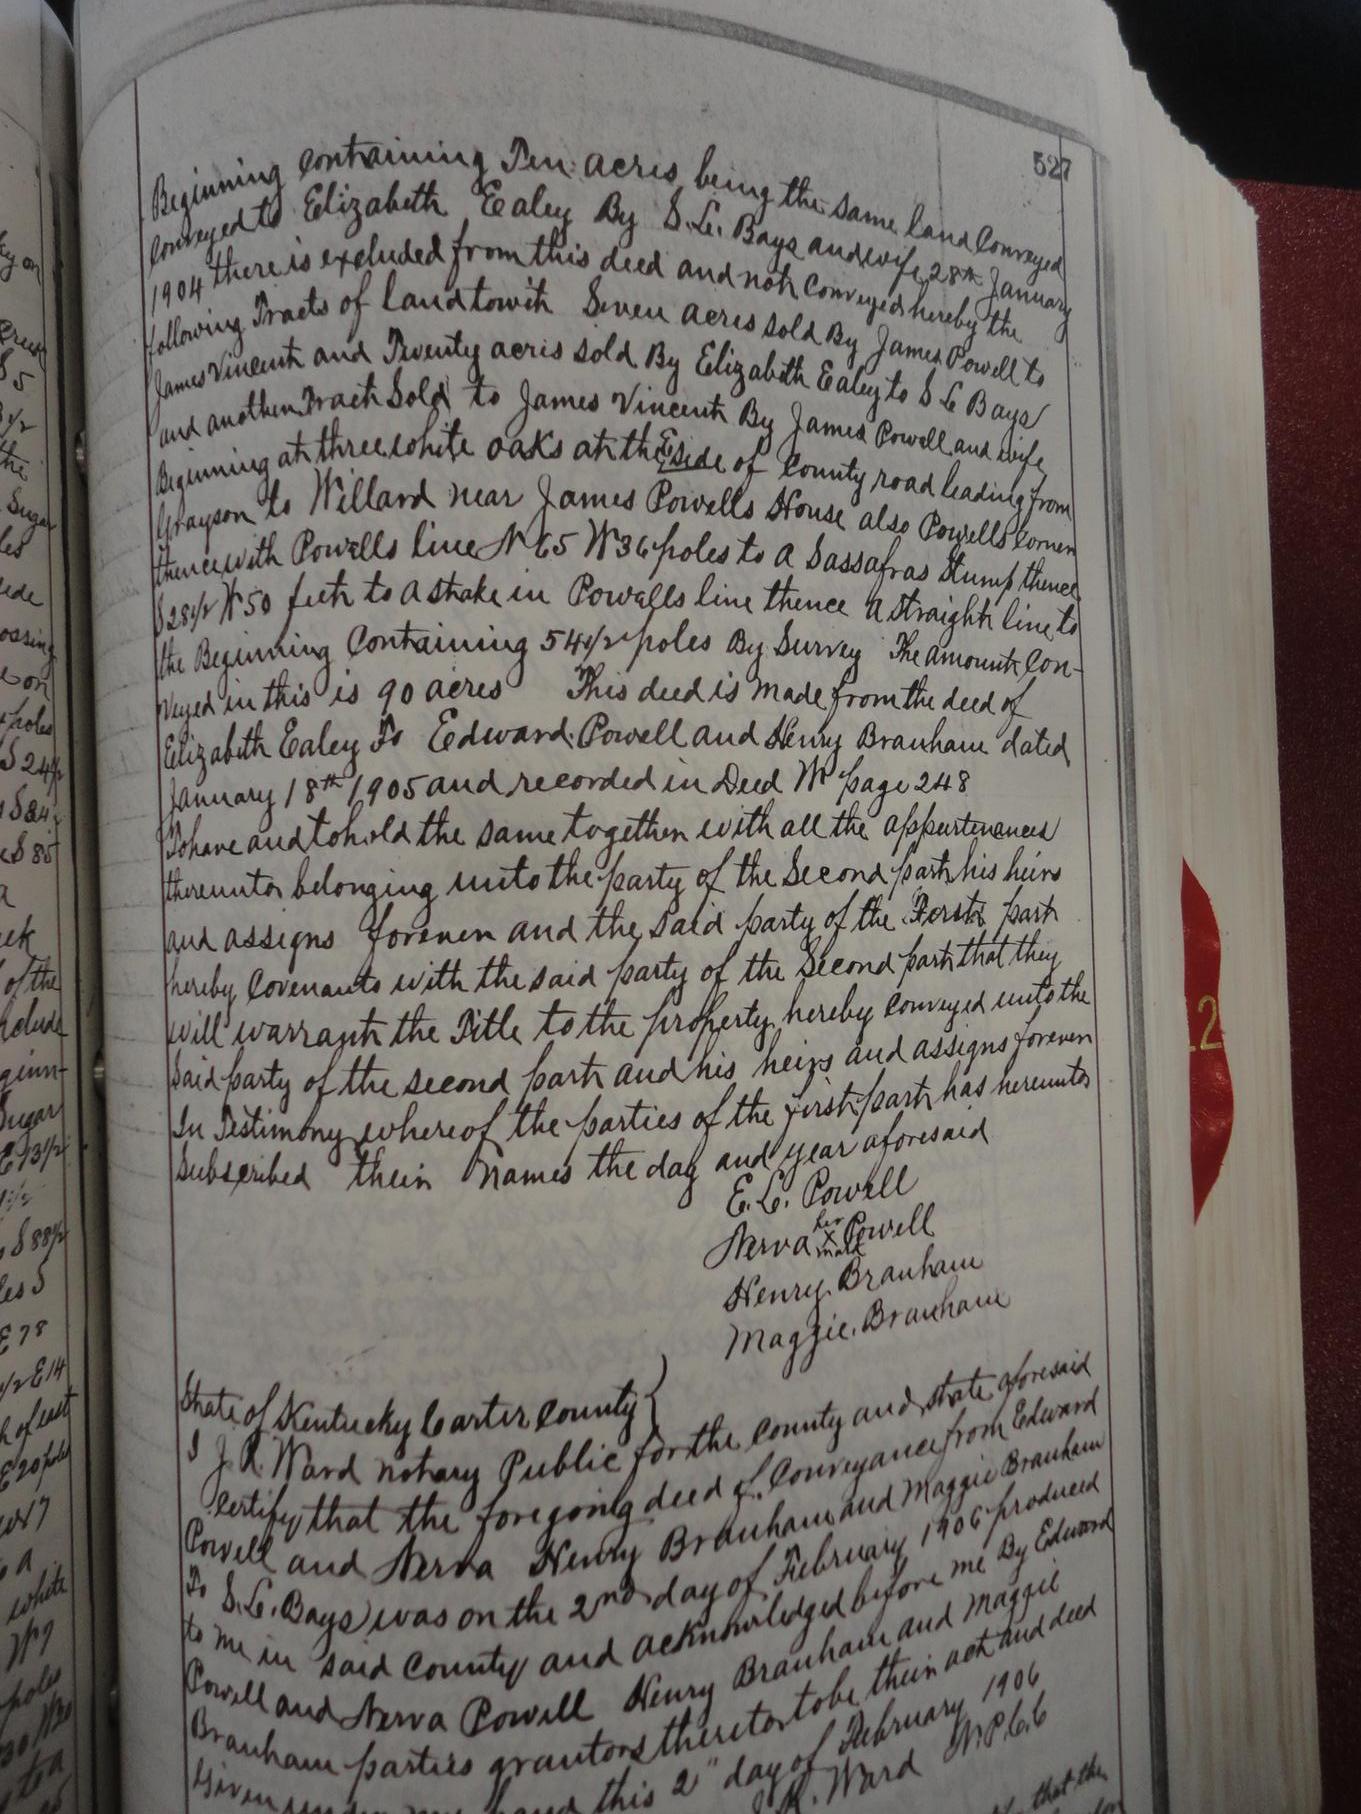 527
Beginning containing Ten acres being the same land conveyed
conveyed to Elizabeth Ealey By S.L. Bays and wife 28th January
1904 there is excluded from this deed and not conveyed hereby the
following Tracts of land towit Seven acres sold By James Powell to
James Vincent and Twenty acres sold By Elizabeth Ealey to S L Bays
and another Tract Sold to James Vincent By James Powell and wife
Beginning at three white oaks at the E side of County road leading from
Grayson to Willard near James Powells House also Powells corner
thence with Powells line N 65 W 36 poles to a Sassafras Stump thence
S 28 1/2 W 50 feet to a stake in Powells line thence a straight line to
the Beginning Containing 54 1/2 poles By Survey The amount Con-
veyed in this is 90 acres This deed is made from the deed of
Elizabeth Ealey To Edward Powell and Henry Branham dated
January 18th 1905 and recorded in Deed W page 248
To have and to hold the same together with all the appurtenances
thereunto belonging unto the party of the Second part his heirs
and assigns forever and the said party of the First part
hereby Covenants with the said party of the Second part that they
will warrant the Title to the property hereby conveyed unto the
Said party of the second part and his heirs and assigns forever
In Testimony whereof the parties of the first part has hereunto
Subscribed their names the day and year aforesaid
E. L. Powell
her
Nerva X Powell
mark
Henry Branham
Maggie Branham
State of Kentucky Carter County
I J.R. Ward notary Public for the County and state aforesaid
certify that the foregoing deed of Conveyance from Edward
Powell and Nerva Henry Branham and Maggie Branham
To S.L. Bays was on the 2nd day of February 1906 produced
to me in said County and acknowledged before me By Edward
Powell and Nerva Powell Henry Branham and Maggie
Branham parties grantors thereto to be their act and deed
Given under my hand this 2" day of February 1906
J.R. Ward N.P.C.C
that the